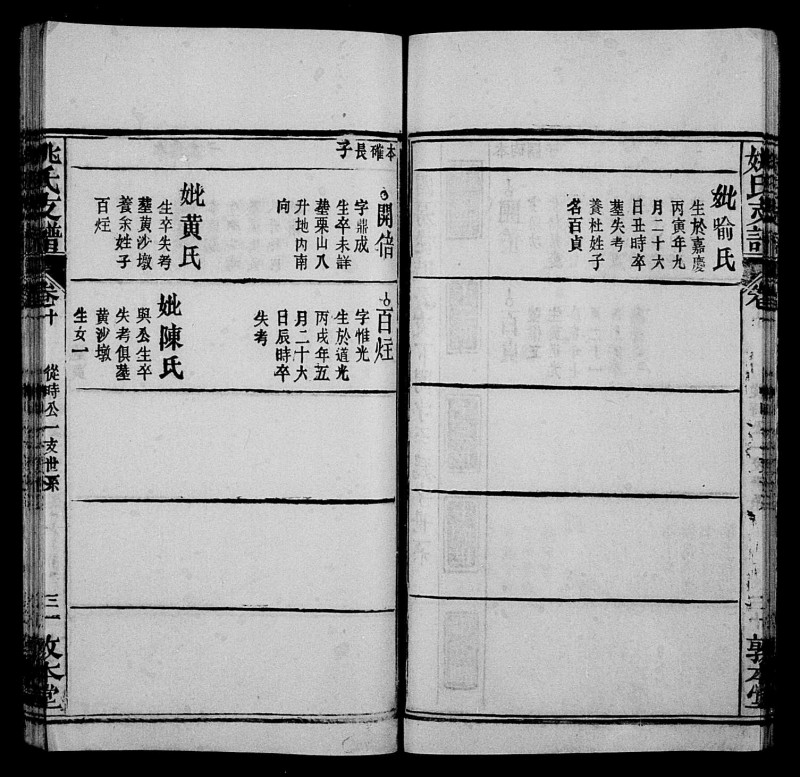 妣喻氏
生於嘉慶
丙寅年九
月二十六
日丑時卒
墓失考
養杜姓子
名百貞
姚氏支譜
卷十
敦本堂
本確長子
開倍
字鼎成
生卒未詳
墓栗山八
升地內南
向
妣黄氏
生卒失考
墓黄沙墩
養余姓子
百炷
百炷
字惟光
生於道光
丙戌年五
月二十六
日辰時卒
失考
妣陳氏
與公生卒
失考俱墓
黄沙墩
生女一
氏支譜
卷十
從時公一支世系
三一
敦本堂